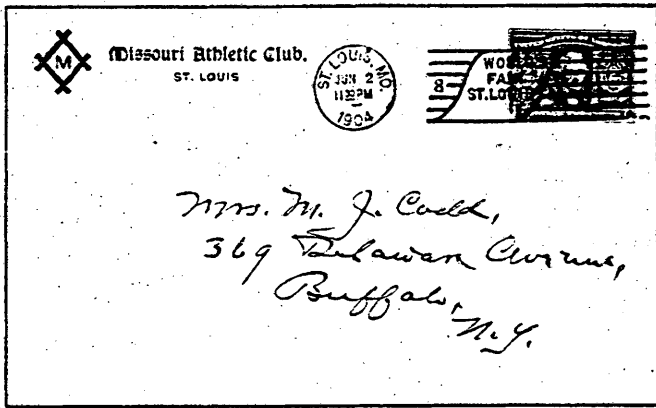 M
Missouri Athletic Club.
ST. LOUIS
ST. LOUIS, MO.
JUN 2
1904
8
WORLD'S
FAIR
ST. LOUIS
Mrs. M. J. Codd,
369 Delaware Avenue,
Buffalo,
N.Y.